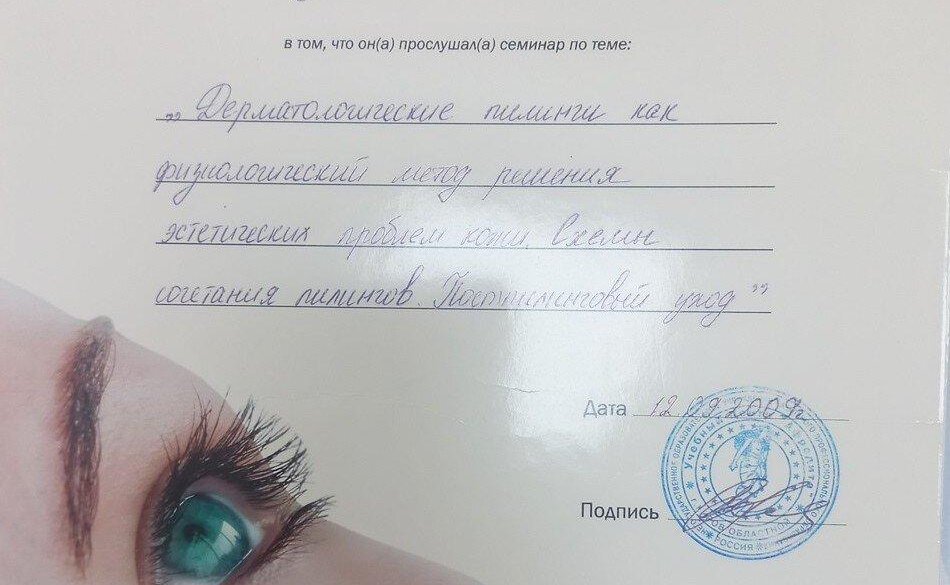 в том, что он(а) прослушал(а) семинар по теме:
„Дерматологические пилинги как
физиологический метод решения
эстетических проблем кожи. Схемы
сочетания пилингов. Постпилинговый уход”
Дата 12.09.2009г
Подпись
Учебный
РОССИЯ